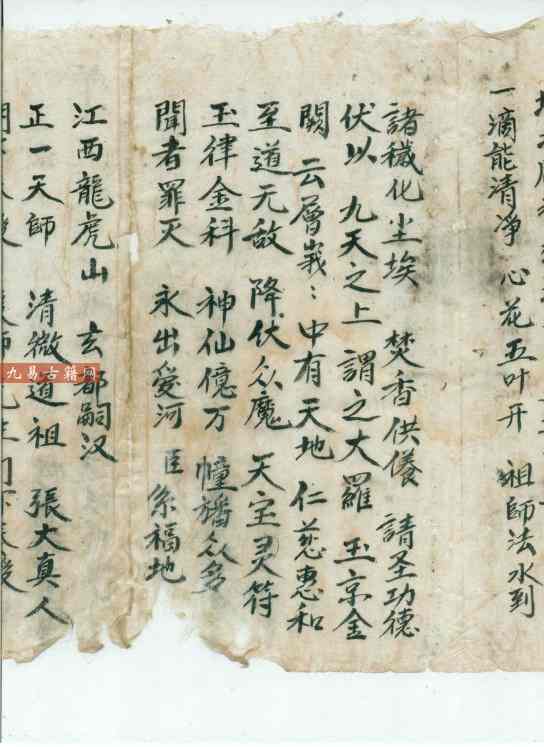 一滴能清净 心花五叶开 祖師法水到
諸穢化尘埃 焚香供養 請圣功德
伏以 九天之上 謂之大羅 玉京金
闕 云層峩〻 中有天地 仁慈惠和
至道无敌 降伏众魔 天宝灵符
玉律金科 神仙億万 幢旛众多
聞者罪灭 永出愛河 臣 系福地
江西龍虎山 玄都嗣汉
正一天師 清微道祖 張大真人
九易古籍网